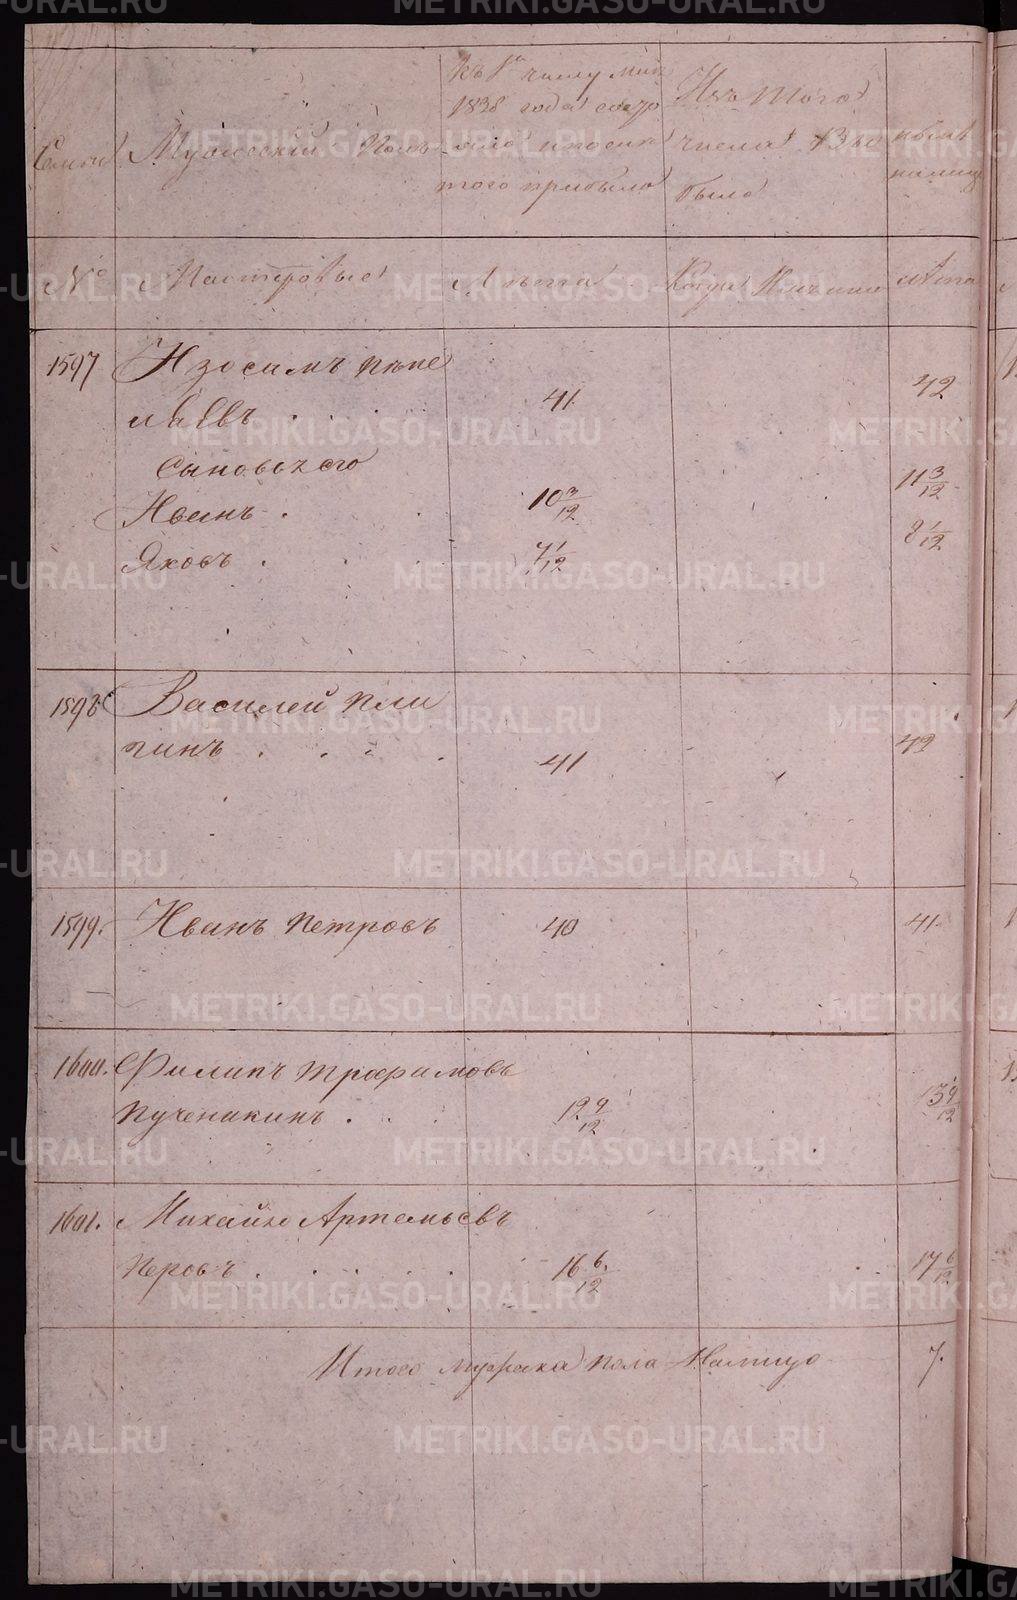 Семьи
Мужескій Полъ
Къ 1му числу мая
1838 года состо
яло и после
того прибыло
Изъ того
числа выбыло
ныне
налицо
№
Мастеровые
Лѣта
Когда И
Лѣта
1597
Изосимъ пѣпе
ляевъ . . . 41 42
Сыновья его
Иванъ . . 10 3/12 11 3/12
Яковъ . . 7 1/12 8 1/12
1598 Василей пли
пинъ . . . . 41 42
1599. Иванъ Петровъ 40 41
1600. Филипъ Трафимовъ
Пученикинъ . . . 12 9/12 13 9/12
1601. Михайло Артемьевъ
Перовъ . . . . . 16 6/12 17 6/12
Итого мужска пола Налицо 7.
METRIKI.GASO-URAL.RU